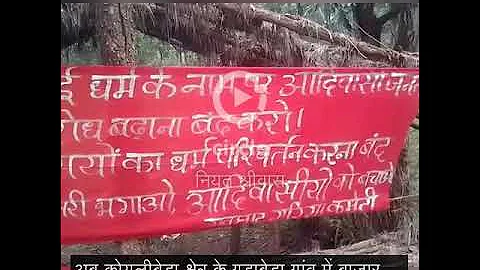 ई धर्म के नाम पर आदिवासी जन
रोध बढ़ाना बंद करो।
नियत श्रीवास
यों का धर्म परिवर्तन करना बंद
री भगाओ, आदिवासीयों को बचाओ
कमेटी
अब कोयलीबेड़ा क्षेत्र के गांव में बाजार